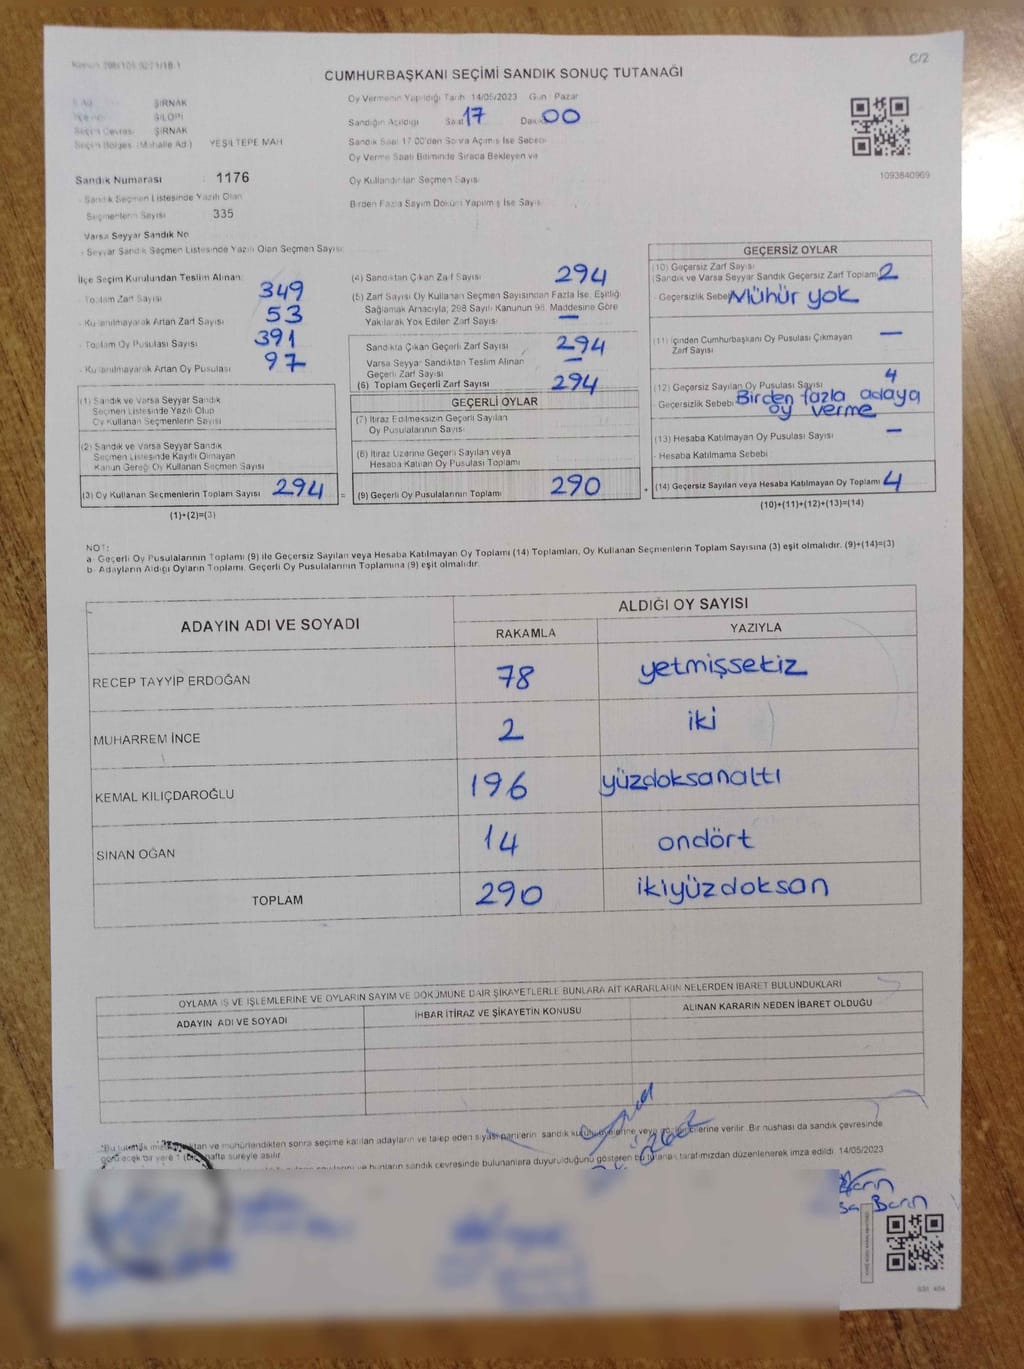 C/2
CUMHURBAŞKANI SEÇİMİ SANDIK SONUÇ TUTANAĞI
Oy Vermenin Yapıldığı Tarih 14/05/2023 Gün : Pazar
ŞIRNAK
SİLOPİ
Seçim Çevresi ŞIRNAK
Seçim Bölgesi (Mahalle Adı) YEŞİLTEPE MAH
Sandığın Açıldığı Saat 17 Dak 00
Sandık Saat 17.00'den Sonra Açılmış İse Sebebi
Oy Verme Saati Bitiminde Sırada Bekleyen ve
Oy Kullandırılan Seçmen Sayısı
Birden Fazla Sayım Döküm Yapılmış İse Sayısı
1093840969
Sandık Numarası : 1176
- Sandık Seçmen Listesinde Yazılı Olan
Seçmenlerin Sayısı 335
Varsa Seyyar Sandık No
- Seyyar Sandık Seçmen Listesinde Yazılı Olan Seçmen Sayısı:
İlçe Seçim Kurulundan Teslim Alınan:
- Toplam Zarf Sayısı 349
- Kullanılmayarak Artan Zarf Sayısı 53
- Toplam Oy Pusulası Sayısı 391
- Kullanılmayarak Artan Oy Pusulası 97
(1) Sandık ve Varsa Seyyar Sandık
Seçmen Listesinde Yazılı Olup
Oy Kullanan Seçmenlerin Sayısı
(2) Sandık ve Varsa Seyyar Sandık
Seçmen Listesinde Kayıtlı Olmayan
Kanun Gereği Oy Kullanan Seçmen Sayısı
(3) Oy Kullanan Seçmenlerin Toplam Sayısı 294 =
(1)+(2)=(3)
(4) Sandıktan Çıkan Zarf Sayısı 294
(5) Zarf Sayısı Oy Kullanan Seçmen Sayısından Fazla İse, Eşitliği
Sağlamak Amacıyla; 298 Sayılı Kanunun 98. Maddesine Göre
Yakılarak Yok Edilen Zarf Sayısı —
Sandıkta Çıkan Geçerli Zarf Sayısı 294
Varsa Seyyar Sandıktan Teslim Alınan
Geçerli Zarf Sayısı —
(6) Toplam Geçerli Zarf Sayısı 294
GEÇERLİ OYLAR
(7) İtiraz Edilmeksizin Geçerli Sayılan
Oy Pusulalarının Sayısı
(8) İtiraz Üzerine Geçerli Sayılan veya
Hesaba Katılan Oy Pusulası Toplamı
(9) Geçerli Oy Pusulalarının Toplamı 290 +
GEÇERSİZ OYLAR
(10) Geçersiz Zarf Sayısı
(Sandık ve Varsa Seyyar Sandık Geçersiz Zarf Toplamı) 2
- Geçersizlik Sebebi Mühür yok
(11) İçinden Cumhurbaşkanı Oy Pusulası Çıkmayan
Zarf Sayısı —
(12) Geçersiz Sayılan Oy Pusulası Sayısı 4
- Geçersizlik Sebebi Birden fazla adaya
oy verme
(13) Hesaba Katılmayan Oy Pusulası Sayısı —
- Hesaba Katılmama Sebebi
(14) Geçersiz Sayılan veya Hesaba Katılmayan Oy Toplamı 4
(10)+(11)+(12)+(13)=(14)
NOT:
a- Geçerli Oy Pusulalarının Toplamı (9) ile Geçersiz Sayılan veya Hesaba Katılmayan Oy Toplamı (14) Toplamları, Oy Kullanan Seçmenlerin Toplam Sayısına (3) eşit olmalıdır. (9)+(14)=(3)
b- Adayların Aldığı Oyların Toplamı, Geçerli Oy Pusulalarının Toplamına (9) eşit olmalıdır.
ADAYIN ADI VE SOYADI
ALDIĞI OY SAYISI
RAKAMLA YAZIYLA
RECEP TAYYİP ERDOĞAN 78 yetmişsekiz
MUHARREM İNCE 2 iki
KEMAL KILIÇDAROĞLU 196 yüzdoksanaltı
SİNAN OĞAN 14 ondört
TOPLAM 290 ikiyüzdoksan
OYLAMA İŞ VE İŞLEMLERİNE VE OYLARIN SAYIM VE DÖKÜMÜNE DAİR ŞİKAYETLERLE BUNLARA AİT KARARLARIN NELERDEN İBARET BULUNDUKLARI
ADAYIN ADI VE SOYADI İHBAR İTİRAZ VE ŞİKAYETİN KONUSU ALINAN KARARIN NEDEN İBARET OLDUĞU
ve mühürlendikten sonra seçime katılan adayların ve talep eden siyasi partilerin sandık kurulu üyelerine veya verilir. Bir nüshası da sandık çevresinde
bir yere 1 hafta süreyle asılır
ve bunların sandık çevresinde bulunanlara duyurulduğunu gösteren bu tutanak tarafımızdan düzenlenerek imza edildi. 14/05/2023